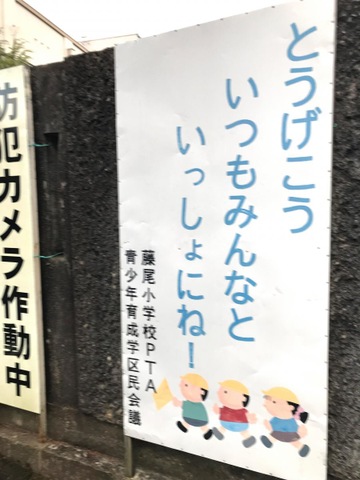 とうげこう
いつもみんなと
いっしょにね!
藤尾小学校PTA
青少年育成学区民会議
防犯カメラ作動中